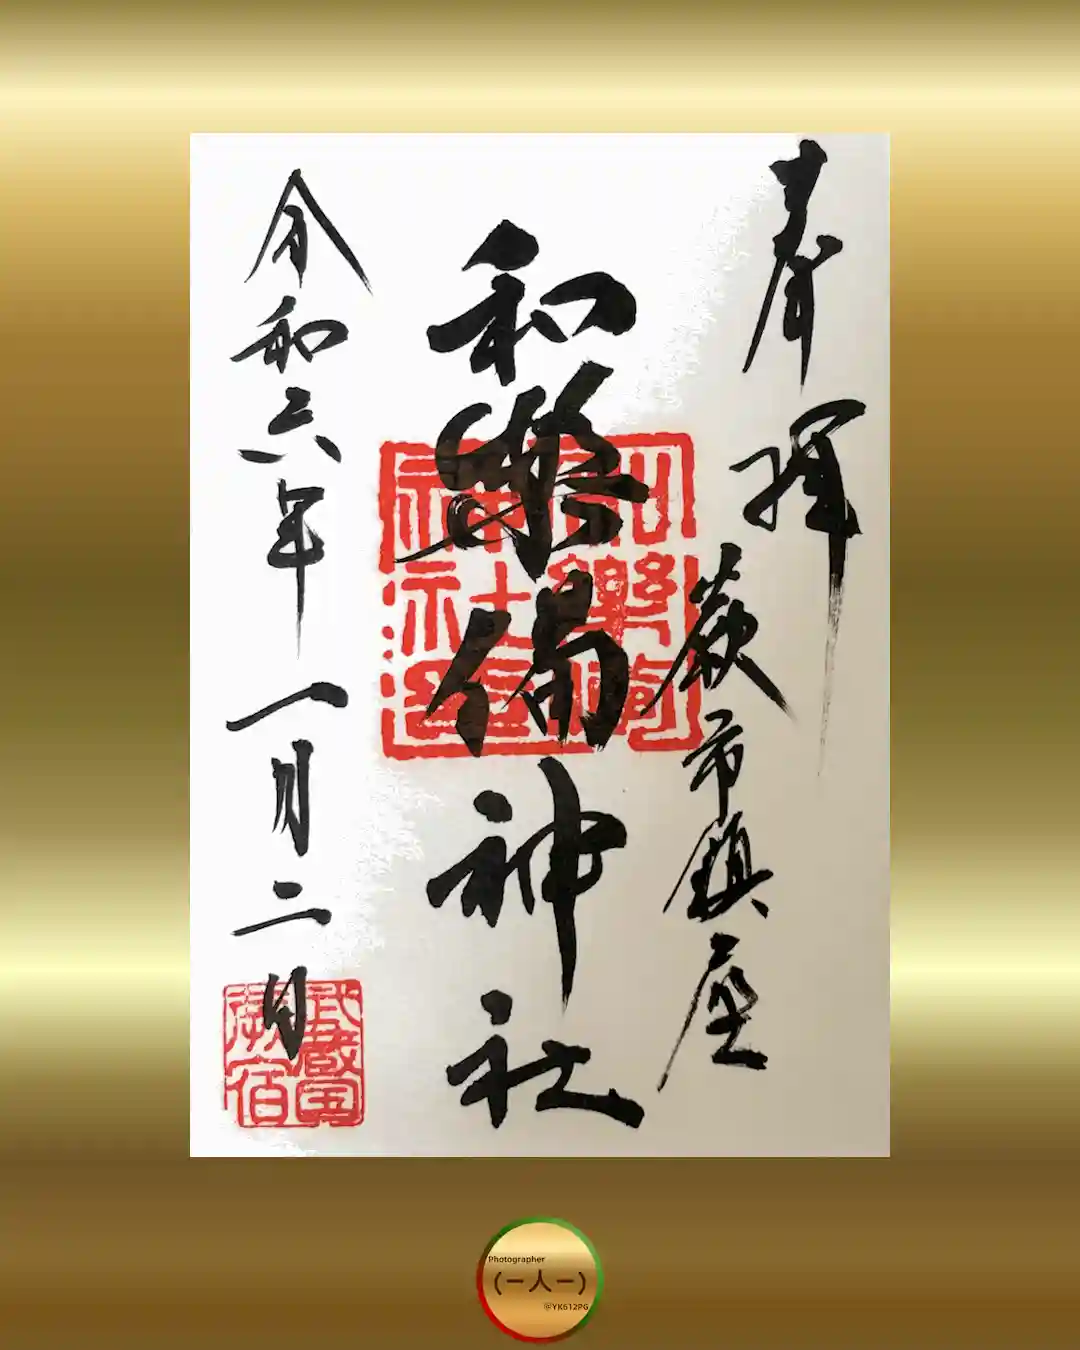 奉拝
蕨市鎮座
和樂備神社
令和六年一月二日
武蔵国
蕨宿
Photographer
(一人一)
@YK612PG